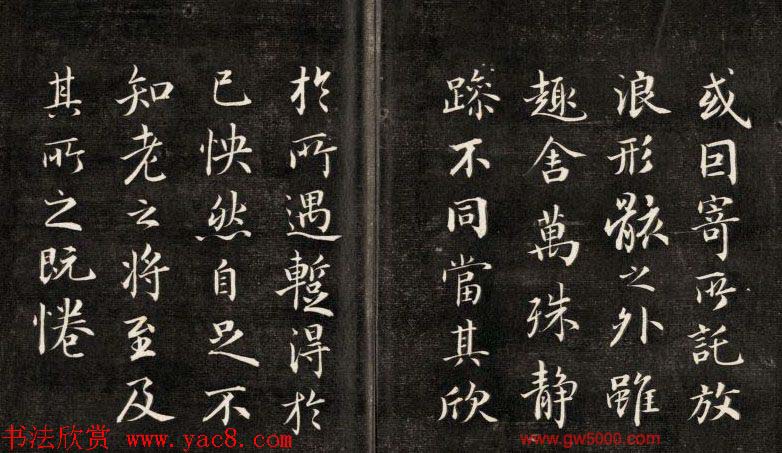 或因寄所託放
浪形骸之外雖
趣舍萬殊静
躁不同當其欣
於所遇蹔得於
已怏然自足不
知老之将至及
其所之既惓
书法欣赏 www.yac8.com
www.gw5000.com